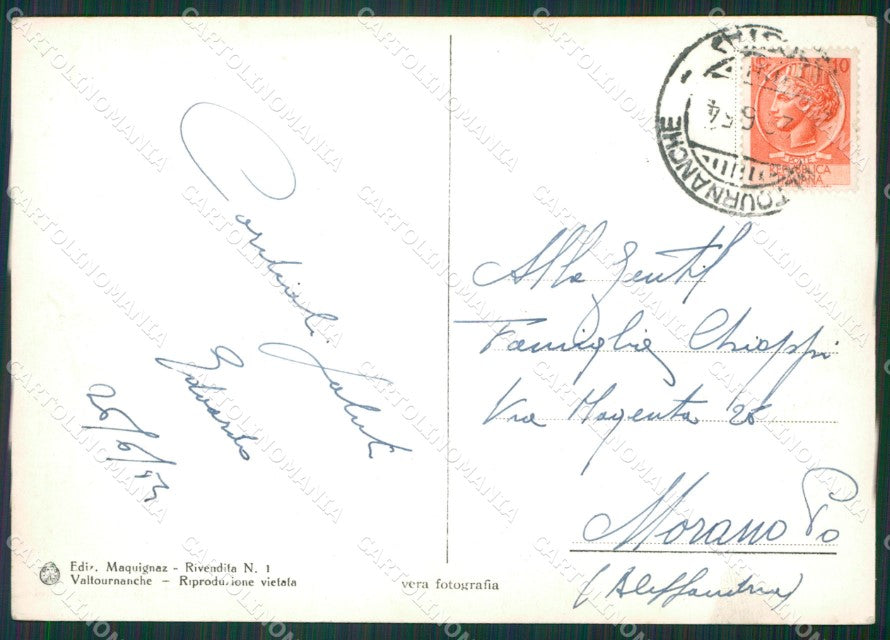 Cordiali Saluti
Edoardo
26/6/54
Alla Gentil
Famiglia Chiappi
Via Magenta 26
Morano Po
(Alessandria)
10
REPUBBLICA
TOURNANCHE
6 54
Ediz. Maquignaz - Rivendita N. 1
Valtournanche - Riproduzione vietata
vera fotografia
CARTOLINOMANIA